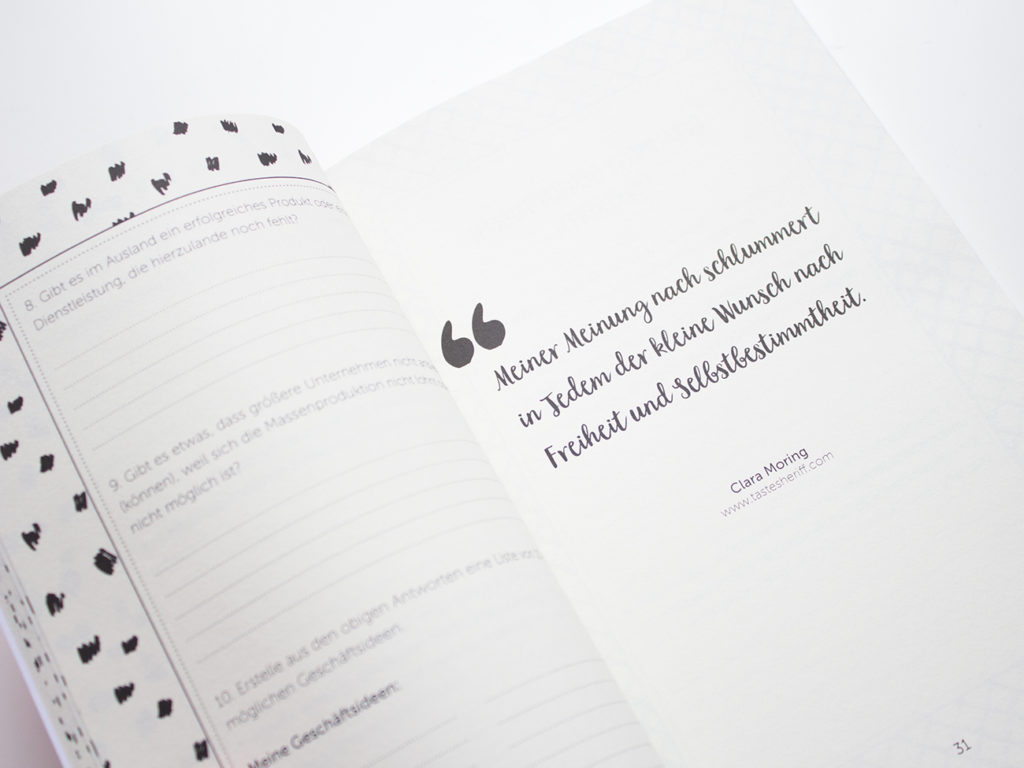 8. Gibt es im Ausland ein erfolgreiches Produkt oder
Dienstleistung, die hierzulande noch fehlt?
9. Gibt es etwas, dass größere Unternehmen nicht
(können), weil sich die Massenproduktion nicht
nicht möglich ist?
10. Erstelle aus den obigen Antworten eine Liste von
möglichen Geschäftsideen:
Meine Geschäftsideen:
“
Meiner Meinung nach schlummert
in Jedem der kleine Wunsch nach
Freiheit und Selbstbestimmtheit.
Clara Moring
www.tastesheriff.com
31